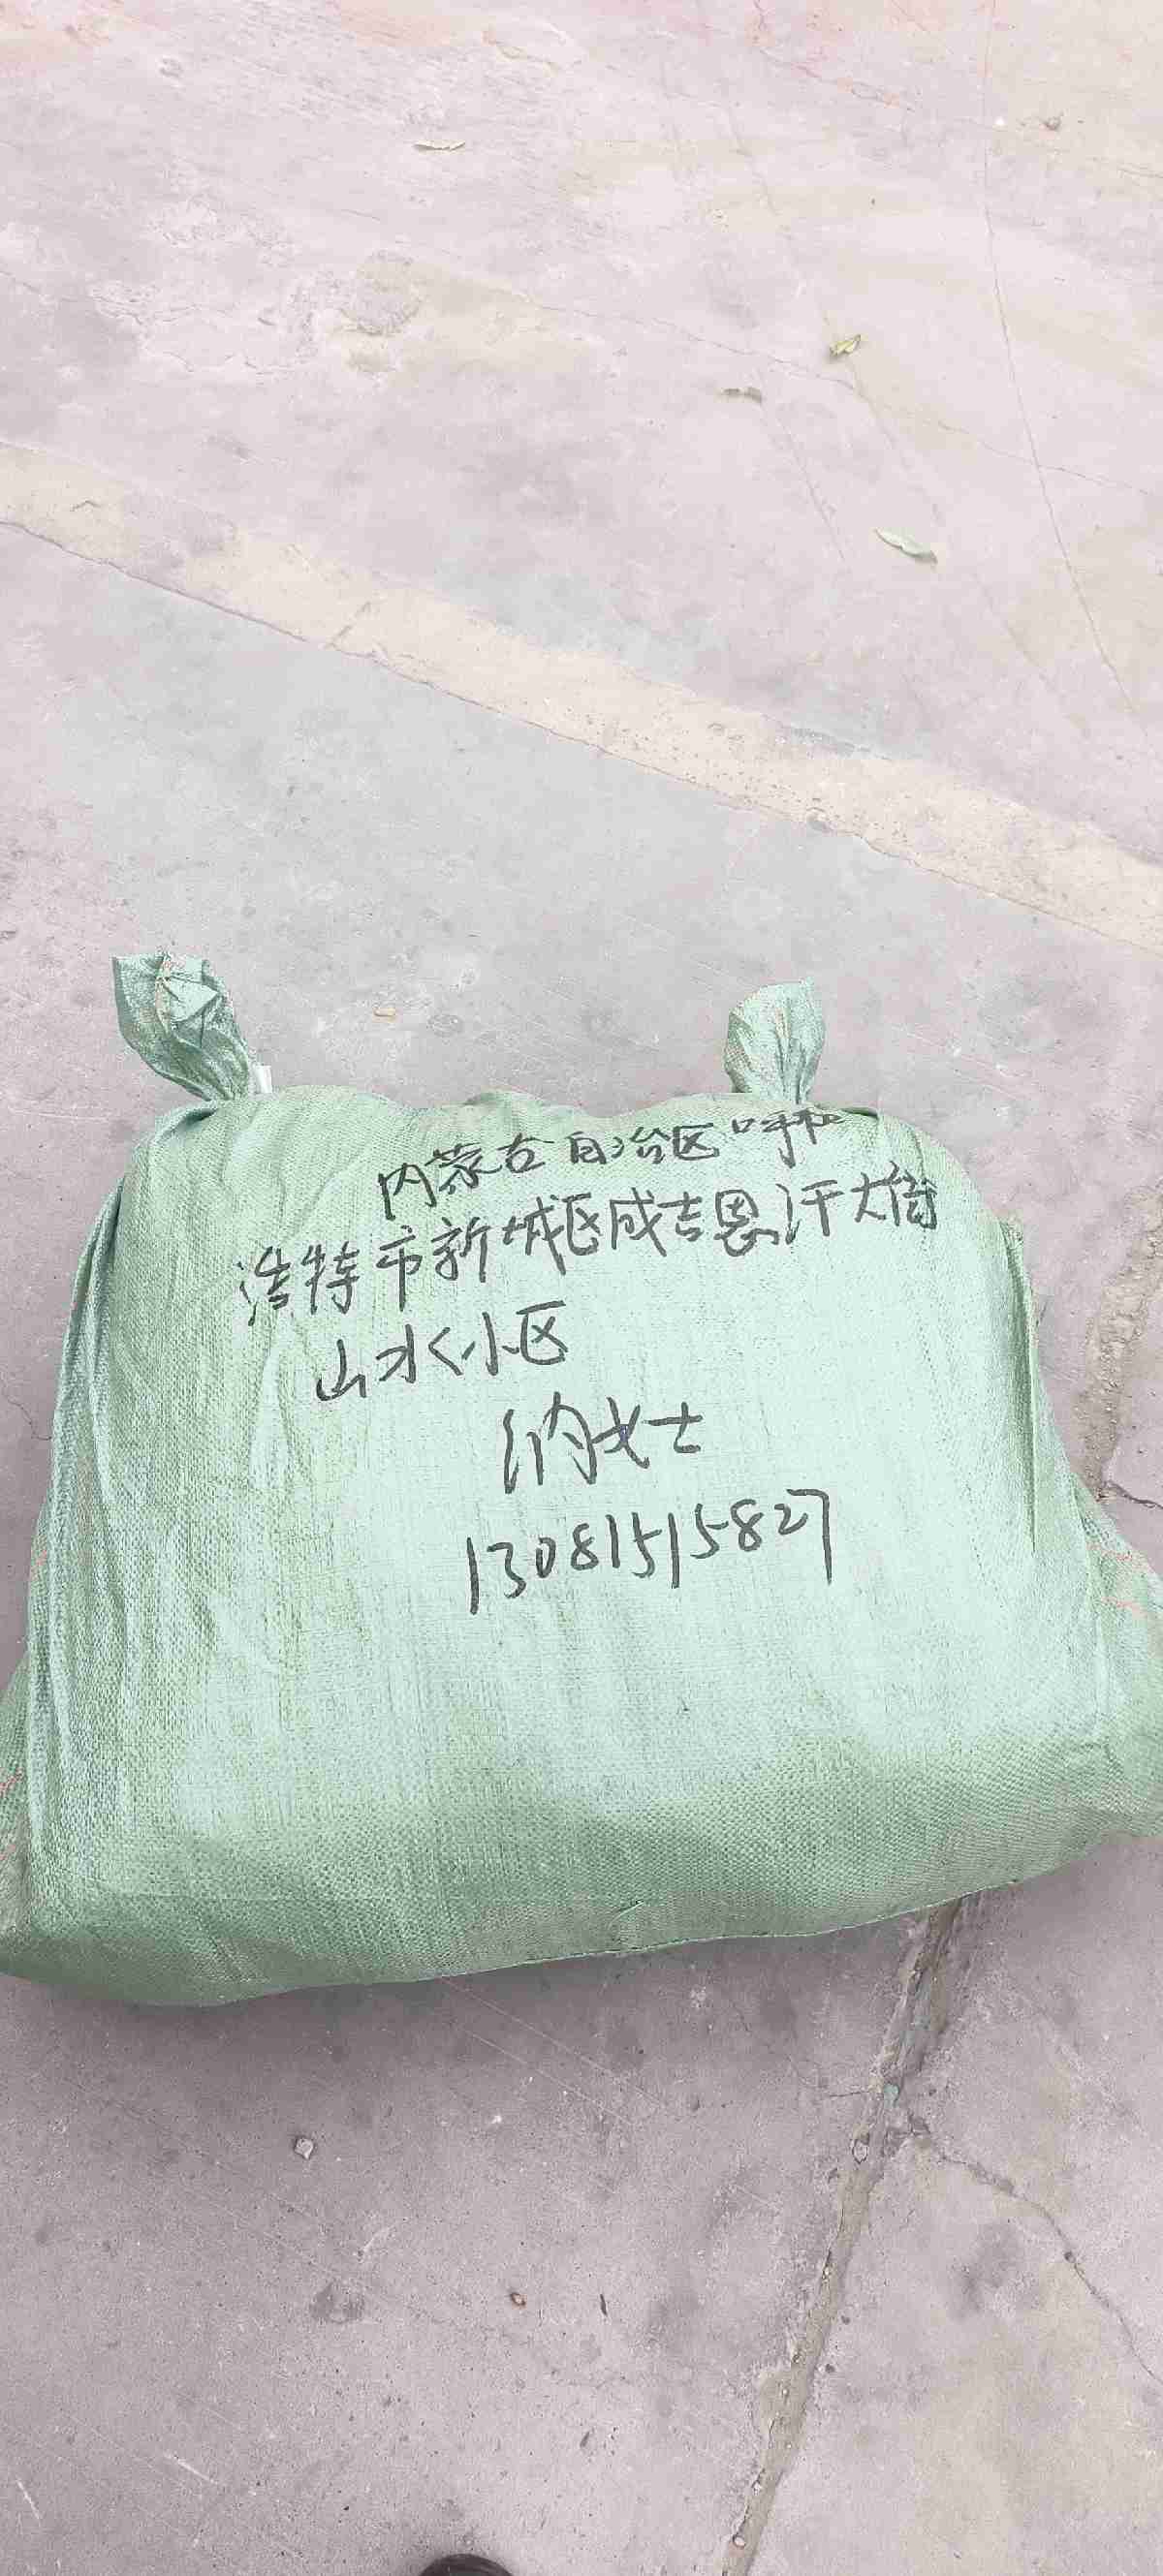 内蒙古自治区呼和
浩特市新城区成吉思汗大街
山水小区
纳女士
13081515827